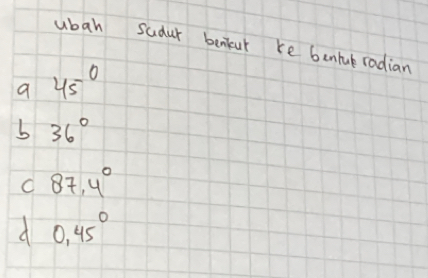 ubah sudut berikut ke bentuk radian
a 45°
b 36°
c 87,4°
d 0,45°